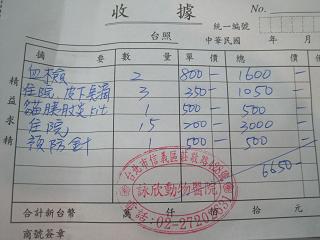 收據
No.
統一編號
台照
中華民國 年 月
摘要 數量 單價 總價
血檢 2 800- 1600-
住院 皮下點滴 3 350- 1050-
貓胰腺炎kit 1 500- 500-
住院 15 200- 3000-
預防針 1 500- 500-
6650-
精益求精
合計新台幣 萬 仟 佰 拾 元
商號簽章
台北市信義區莊敬路
詠欣動物醫院
電話:02-2720